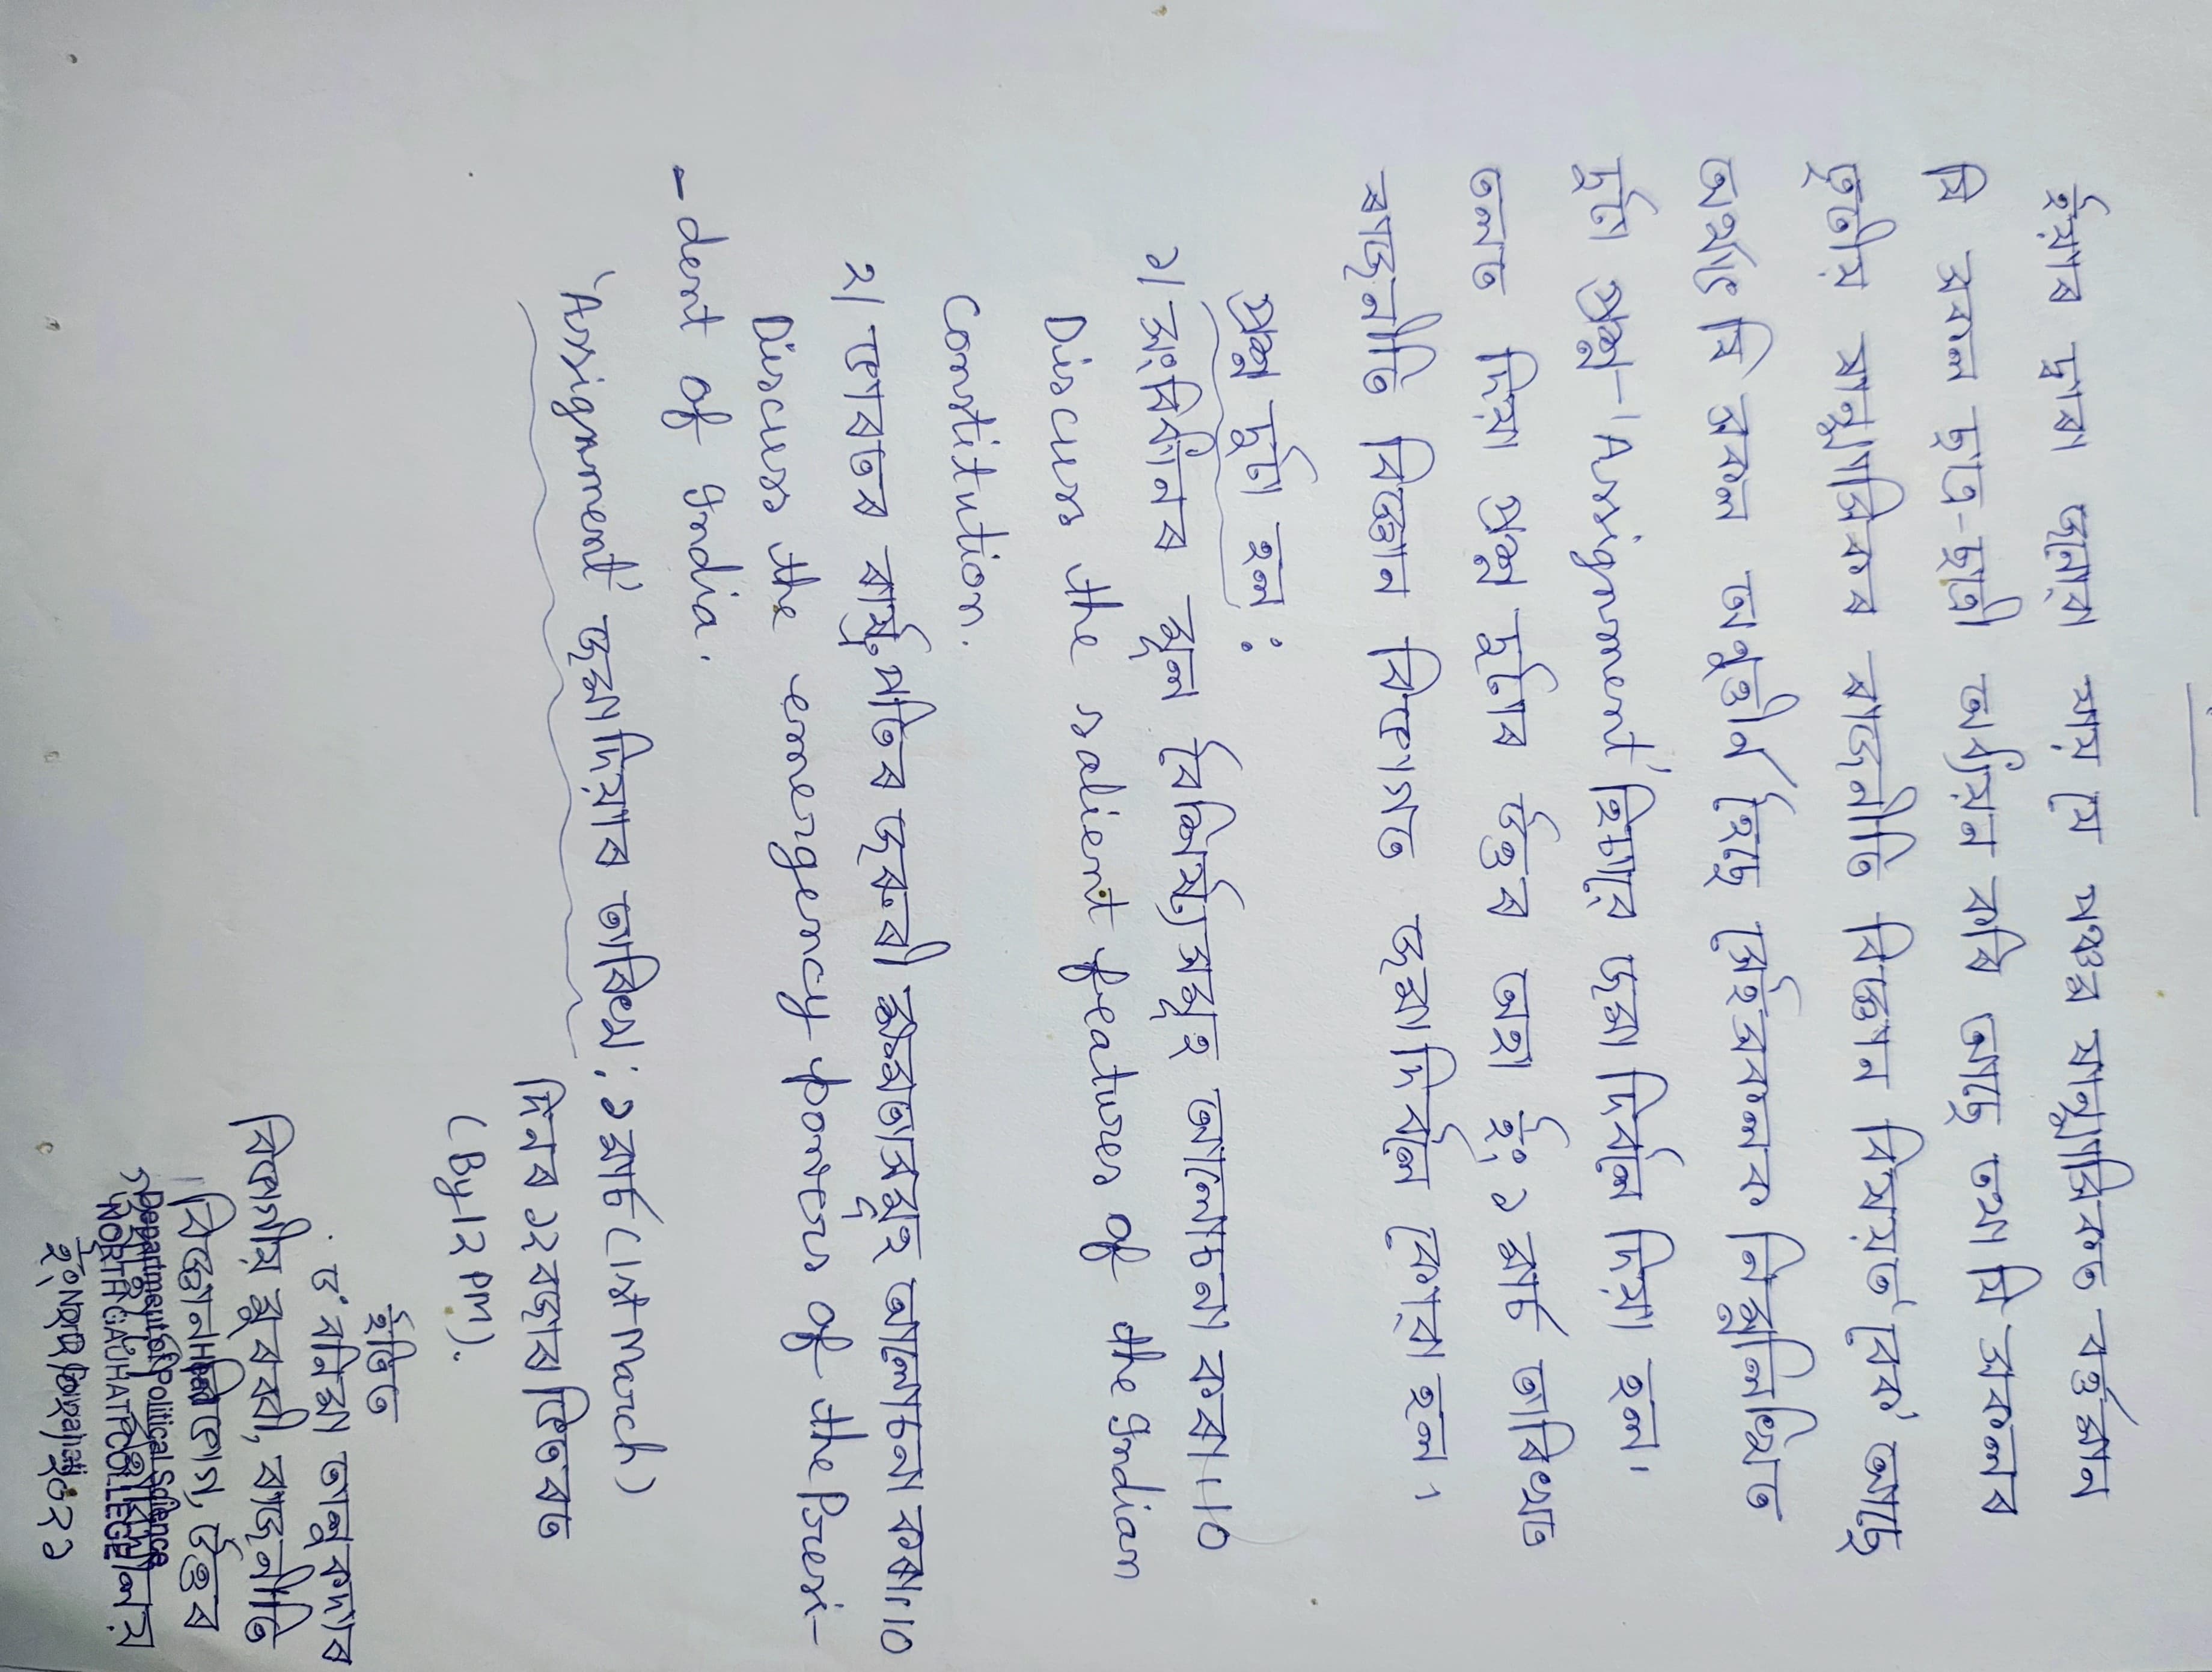 ইয়াৰ দ্বাৰা জনোৱা যায় যে পঞ্চম ষাণ্মাসিকত বৰ্ত্তমান
যি সকল ছাত্ৰ-ছাত্ৰী অধ্যয়ন কৰি আছে তথা যি সকলৰ
তৃতীয় ষাণ্মাসিকৰ ৰাজনীতি বিজ্ঞান বিষয়ত 'বেক' আছে
অৰ্থাৎ যি সকল অনুত্তীৰ্ণ হৈছে সেইসকলক নিম্নলিখিত
দুটা প্ৰশ্ন 'Assignment' হিচাপে জমা দিবলৈ দিয়া হল।
তলত দিয়া প্ৰশ্ন দুটাৰ উত্তৰ অহা ইং ১ মাৰ্চ তাৰিখে
ৰাজনীতি বিজ্ঞান বিভাগত জমা দিবলৈ কোৱা হল।
প্ৰশ্ন দুটা হল :
১/ সংবিধানৰ মূল বৈশিষ্ট্যসমূহ আলোচনা কৰা। 10
Discuss the salient features of the Indian
Constitution.
২/ ভাৰতৰ ৰাষ্ট্ৰপতিৰ জৰুৰী ক্ষমতাসমূহ আলোচনা কৰা। 10
Discuss the emergency powers of the Presi-
-dent of India.
'Assignment' জমাদিয়াৰ তাৰিখ : ১ মাৰ্চ (1st March)
দিনৰ ১২ বজাৰ ভিতৰত
(By 12 PM).
ইতি
ড° ৰনিমা তালুকদাৰ
বিভাগীয় মুৰব্বী, ৰাজনীতি
বিজ্ঞান বিভাগ, উত্তৰ
Department of Political Science
NORTH GAUHATI COLLEGE